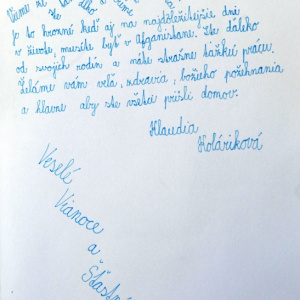 je to hrozné keď aj na najdôležitejšie dni
v živote, musíte byť v Afganistane. Ste ďaleko
od svojich rodín a máte strašne ťažkú prácu.
Želáme vám veľa zdravia, božieho požehnania
a hlavne aby ste všetci prišli domov.
Klaudia
Koláriková
Veselé
Vianoce
a
Šťastn